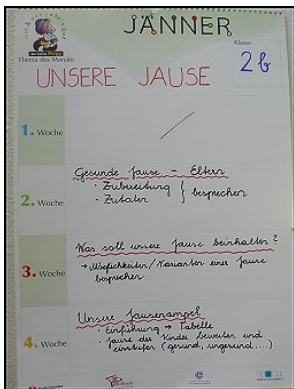 JÄNNER
Klasse:
2b
Thema des Monats:
UNSERE JAUSE
1. Woche
Gesunde Jause - Eltern
· Zubereitung
· Zutaten } besprechen
2. Woche
Was soll unsere Jause beinhalten?
→ Möglichkeiten/Varianten einer Jause
besprechen
3. Woche
Unsere Jausenampel
· Einführung → Tabelle
· Jause der Kinder bewerten und
einstufen (gesund, ungesund,...)
4. Woche